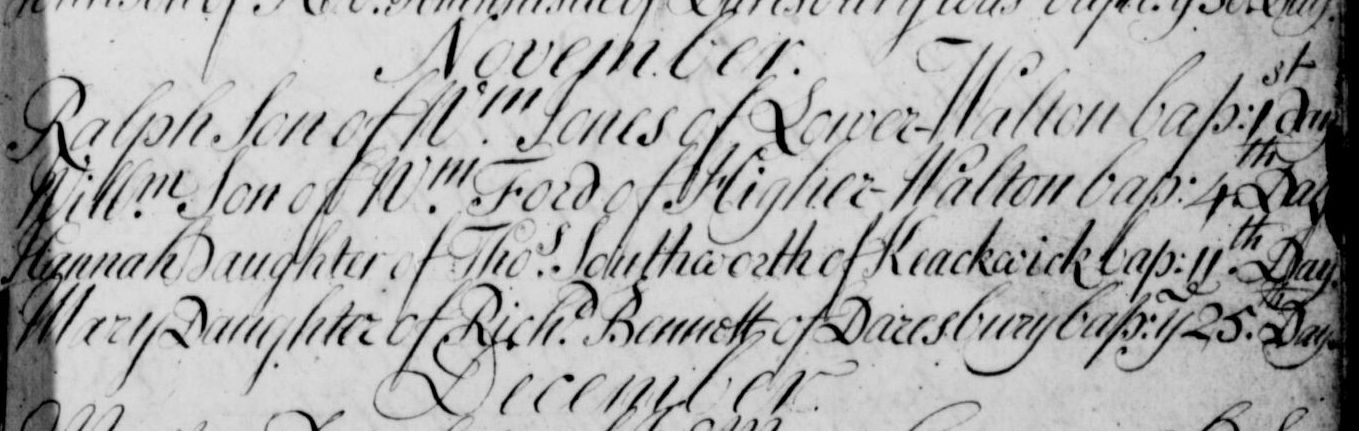 son of of Daresbury was bapt: y 30. Day.
November.
Ralph Son of Wm. Jones of Lower-Walton bap: 1st Day
Willm. Son of Wm. Ford of Higher-Walton bap: 4th Day
Hannah Daughter of Thos. Southworth of Keackwick bap: 11th Day.
Mary Daughter of Richd. Bennett of Daresbury bap: ye 25th Day.
December.